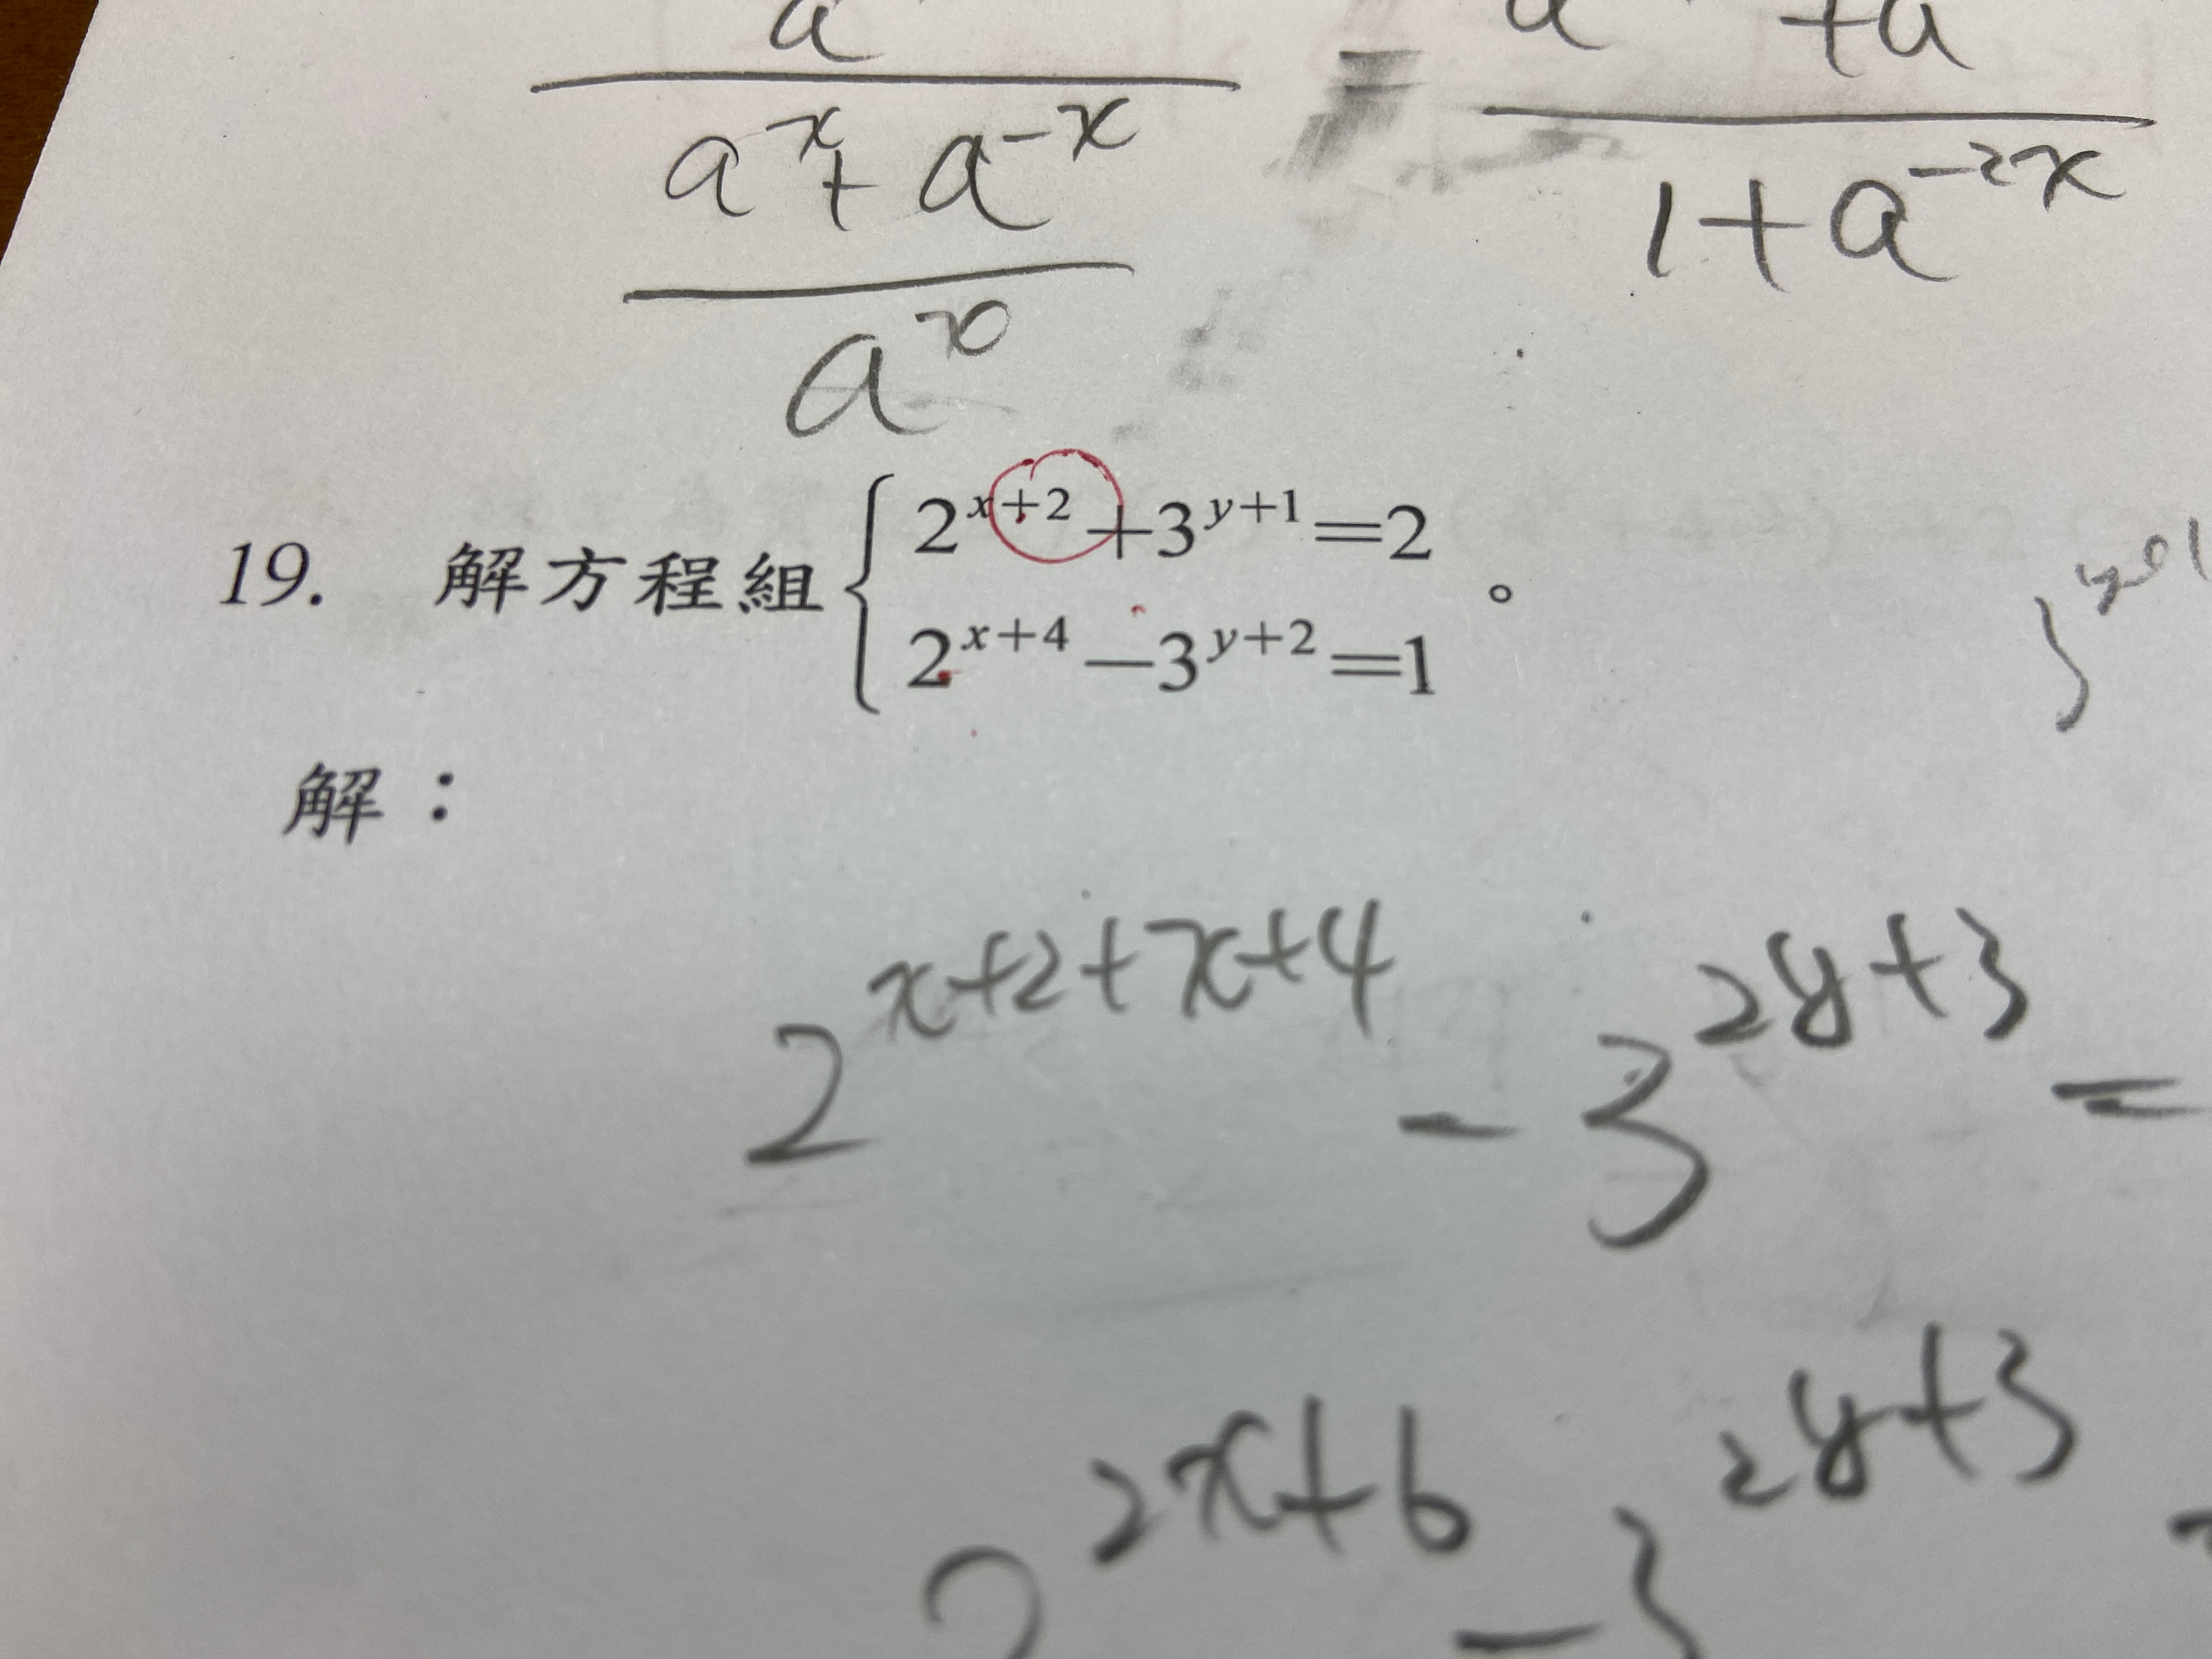 a = a +a
a^x + a^-x 1+a^-2x
a^x
19. 解方程組 { 2^x+2 +3^y+1=2
2^x+4 −3^y+2=1 。
解：
2^x+2+x+4 - 3^2y+3 =
2^2x+6 - 3^2y+3